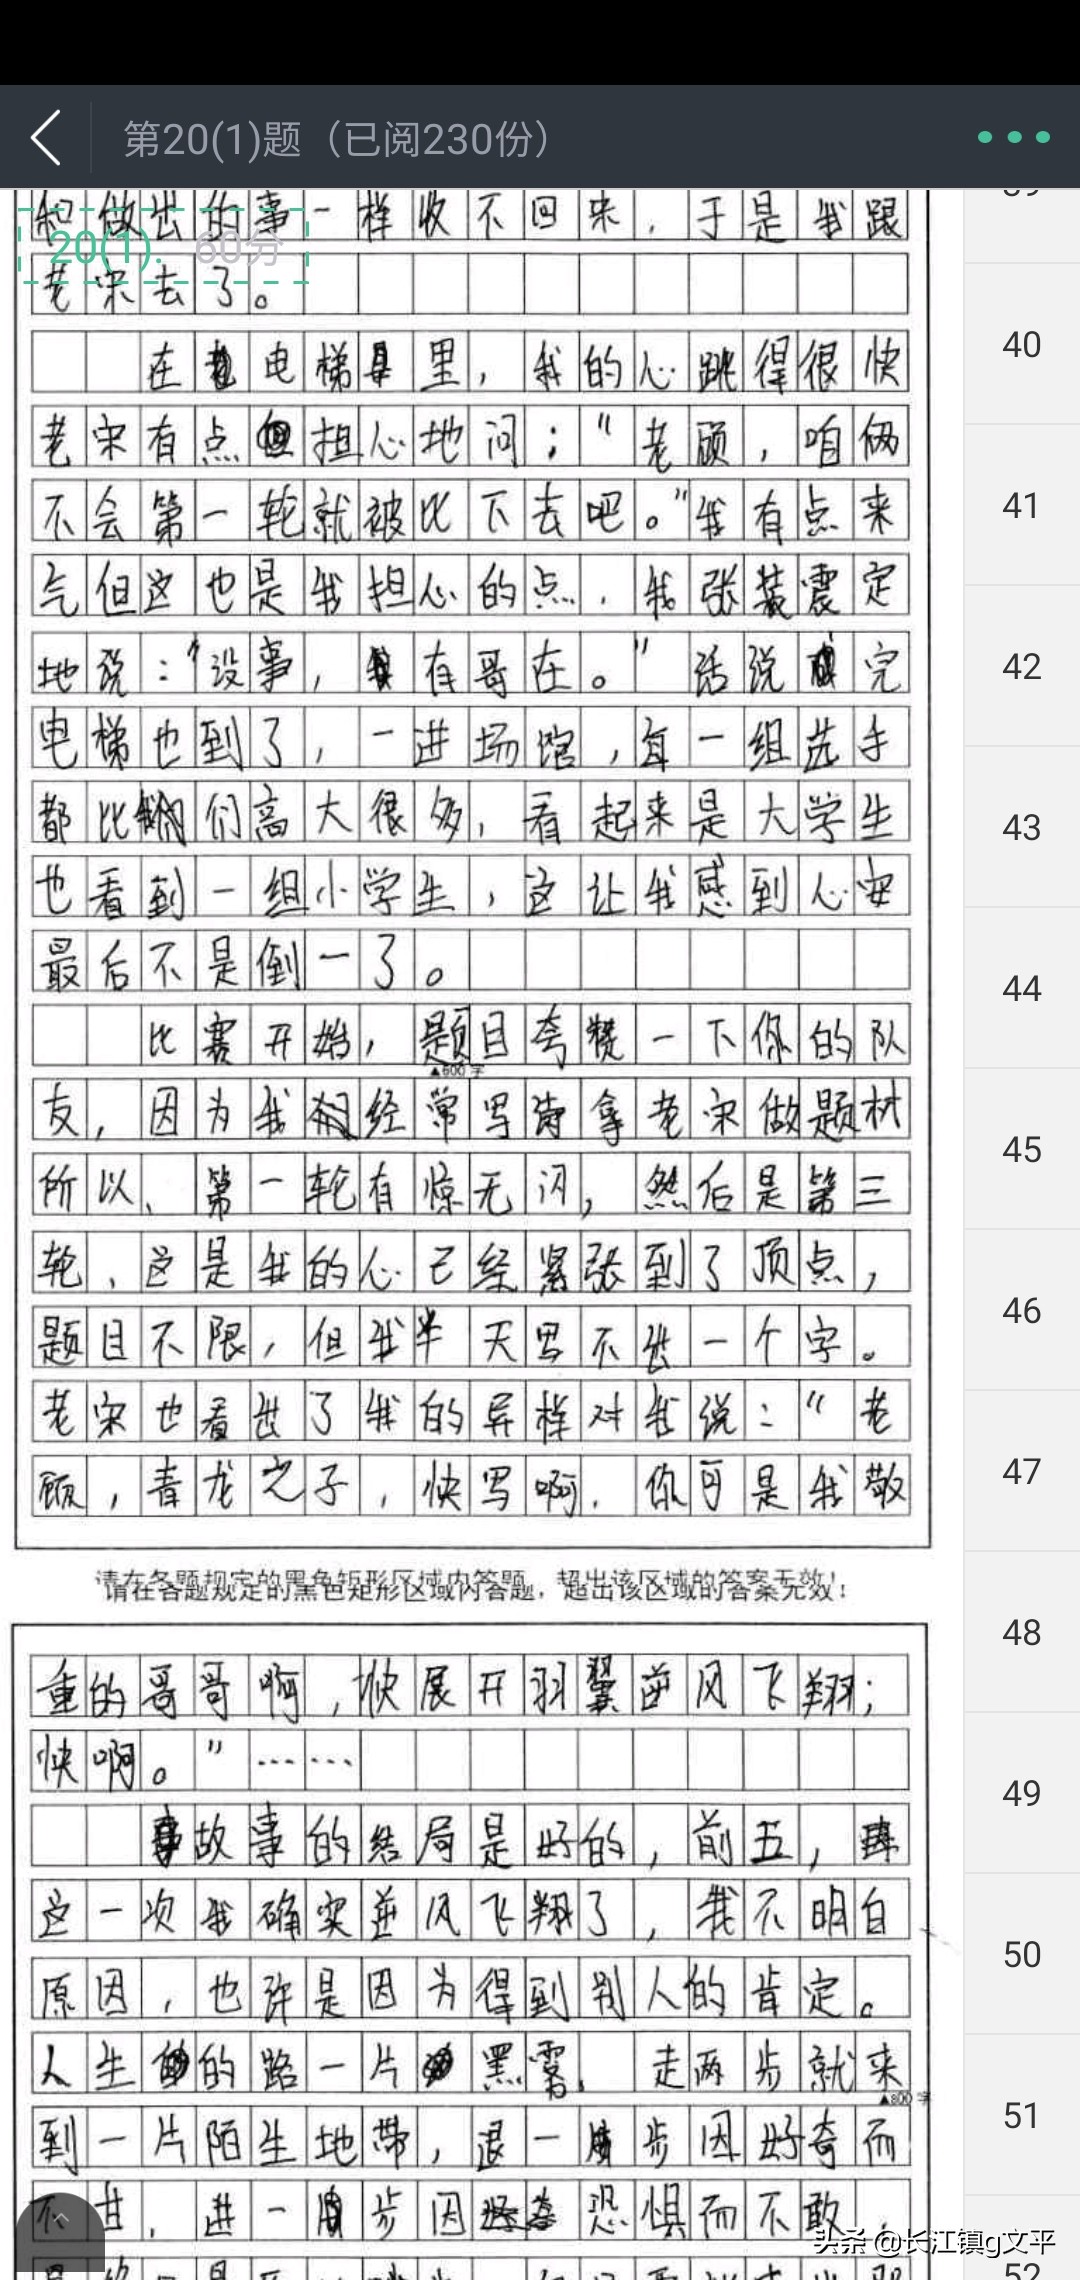 第20(1)题（已阅230份）
和做出的事一样收不回来，于是我跟
20(1). 60分
老宋去了。
在电梯里，我的心跳得很快
老宋有点担心地问："老顾，咱俩
不会第一轮就被比下去吧。"我有点来
气但这也是我担心的点，我张装震定
地说："没事，有哥在。"话说完
电梯也到了，一进场馆，每一组选手
都比们高大很多，看起来是大学生
也看到一组小学生，这让我感到心安
最后不是倒一了。
比赛开始，题目夸赞一下你的队
▲600字
友，因为我经常写诗拿老宋做题材
所以、第一轮有惊无闪，然后是第三
轮、这是我的心已经紧张到了顶点，
题目不限，但我半天写不出一个字。
老宋也看出了我的异样对我说："老
顾，青龙之子，快写啊，你可是我敬
请在各题规定的黑色矩形区域内答题，超出该区域的答案无效！
请在各题规定的黑色矩形区域内答题，超出该区域的答案无效！
重的哥哥啊，快展开羽翼逆风飞翔；
快啊。"……
故事的结局是好的，前五，
这一次我确实逆风飞翔了，我不明白
原因，也许是因为得到别人的肯定。
人生的路一片黑雾，走两步就来
▲800字
到一片陌生地带，退一步因好奇而
不甘，进一步因恐惧而不敢，
头条 @长江镇g文平
40
41
42
43
44
45
46
47
48
49
50
51
52